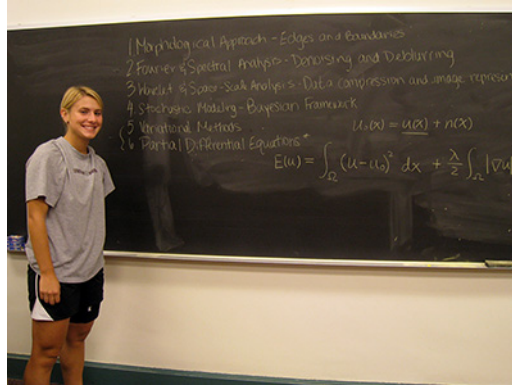 1 Morphological Approach - Edges and Boundaries
2 Fourier & Spectral Analysis - Denoising and Deblurring
3 Wavelet & Space-Scale Analysis - Data compression and image represen
4. Stochastic Modeling - Bayesian Framework
5 Variational Methods
6 Partial Differential Equations *
u₀(x) = u(x) + n(x)
E(u) = ∫_Ω (u-u₀)² dx + λ/2 ∫_Ω |∇u|